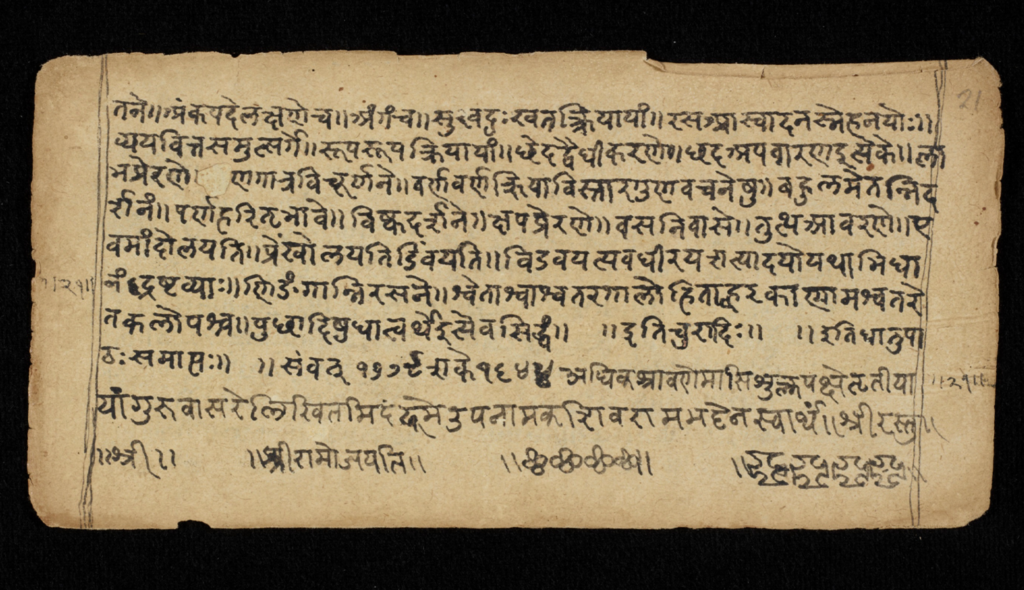 तने॥ अंक पदे लक्षणे च॥ अंग च॥ सुख दुःख तत्क्रियायां॥ रस आस्वादनस्नेहनयोः॥
व्यय वित्तसमुत्सर्गे॥ रूप रूपक्रियायां॥ छेद द्वैधीकरणे॥ छद अपवारण इत्येके॥ ला
भ प्रेरणे व्रण गात्रविचूर्णने॥ वर्ण वर्णक्रियाविस्तारगुणवचनेषु॥ बहुलमेतन्निद
र्शनं॥ पर्ण हरितभावे॥ विष्क दर्शने॥ क्षप प्रेरणे॥ वस निवासे॥ तुत्थ आवरणे॥ ए
वमांदोलयति॥ प्रेंखोलयति डिंबयति॥ विडंबय त्यवधीरय त्यादयो यथाभिधा
नं द्रष्टव्याः॥ णिङंगान्निरसने॥ श्वेताश्वाश्वतरगालोडिताह्वरकाणामश्वतरे
तकलोपश्च॥ पुच्छादिषु धात्वर्थे इत्येव सिद्धं॥ ॥इति चुरादिः॥ ॥इति धातुपा
ठः समाप्तः॥ ॥संवत् १७७९ शके १६४४ अधिकश्रावणे मासि शुक्लपक्षे तृतीया
यां गुरुवासरे लिखितमिदं उपनामक शिवरामभट्टेन स्वार्थं॥ श्रीरस्तु॥
॥श्री॥ ॥श्रीरामो जयति॥ ॥छ छ छ छ॥
॥२१॥
॥२१॥
21